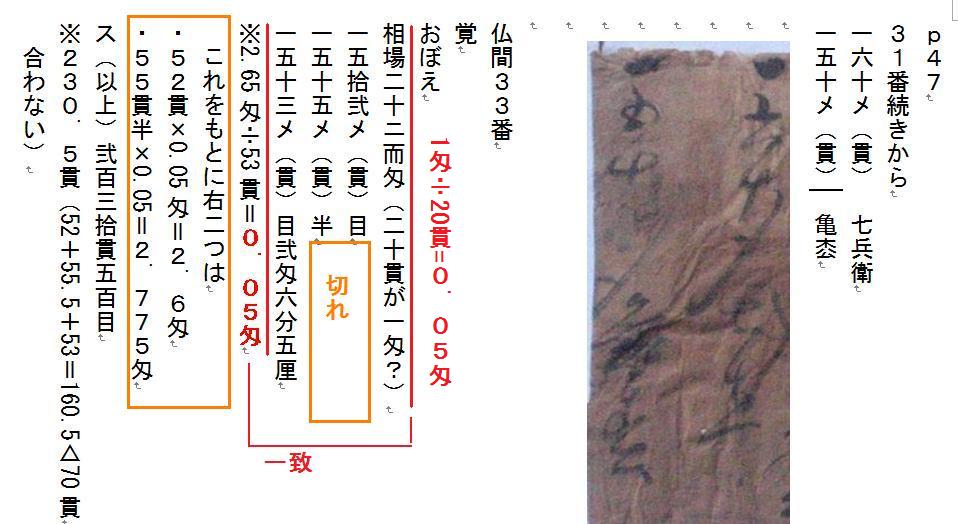 ｐ４７
３１番続きから
一六十メ（貫）　七兵衛
一五十メ（貫）― 亀枩
仏間３３番
覚
おぼえ
1匁÷20貫=０．０５匁
相場二十二而匁（二十貫が一匁？）
一五拾弐メ（貫）目
一五十五メ（貫）半
切れ
一五十三メ（貫）目弐匁六分五厘
※2.65匁÷53貫＝０．０５匁
一致
これをもとに右二つは
・５２貫×0.05匁＝２．６匁
・５５貫半×0.05＝２．７７５匁
ス（以上）弐百三拾貫五百目
※２３０．５貫（52＋55.5＋53＝160.5△70貫
合わない）